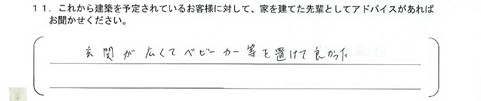 １１．これから建築を予定されているお客様に対して、家を建てた先輩としてアドバイスがあれば
お聞かせください。
玄関が広くてベビーカー等を置けて良かった